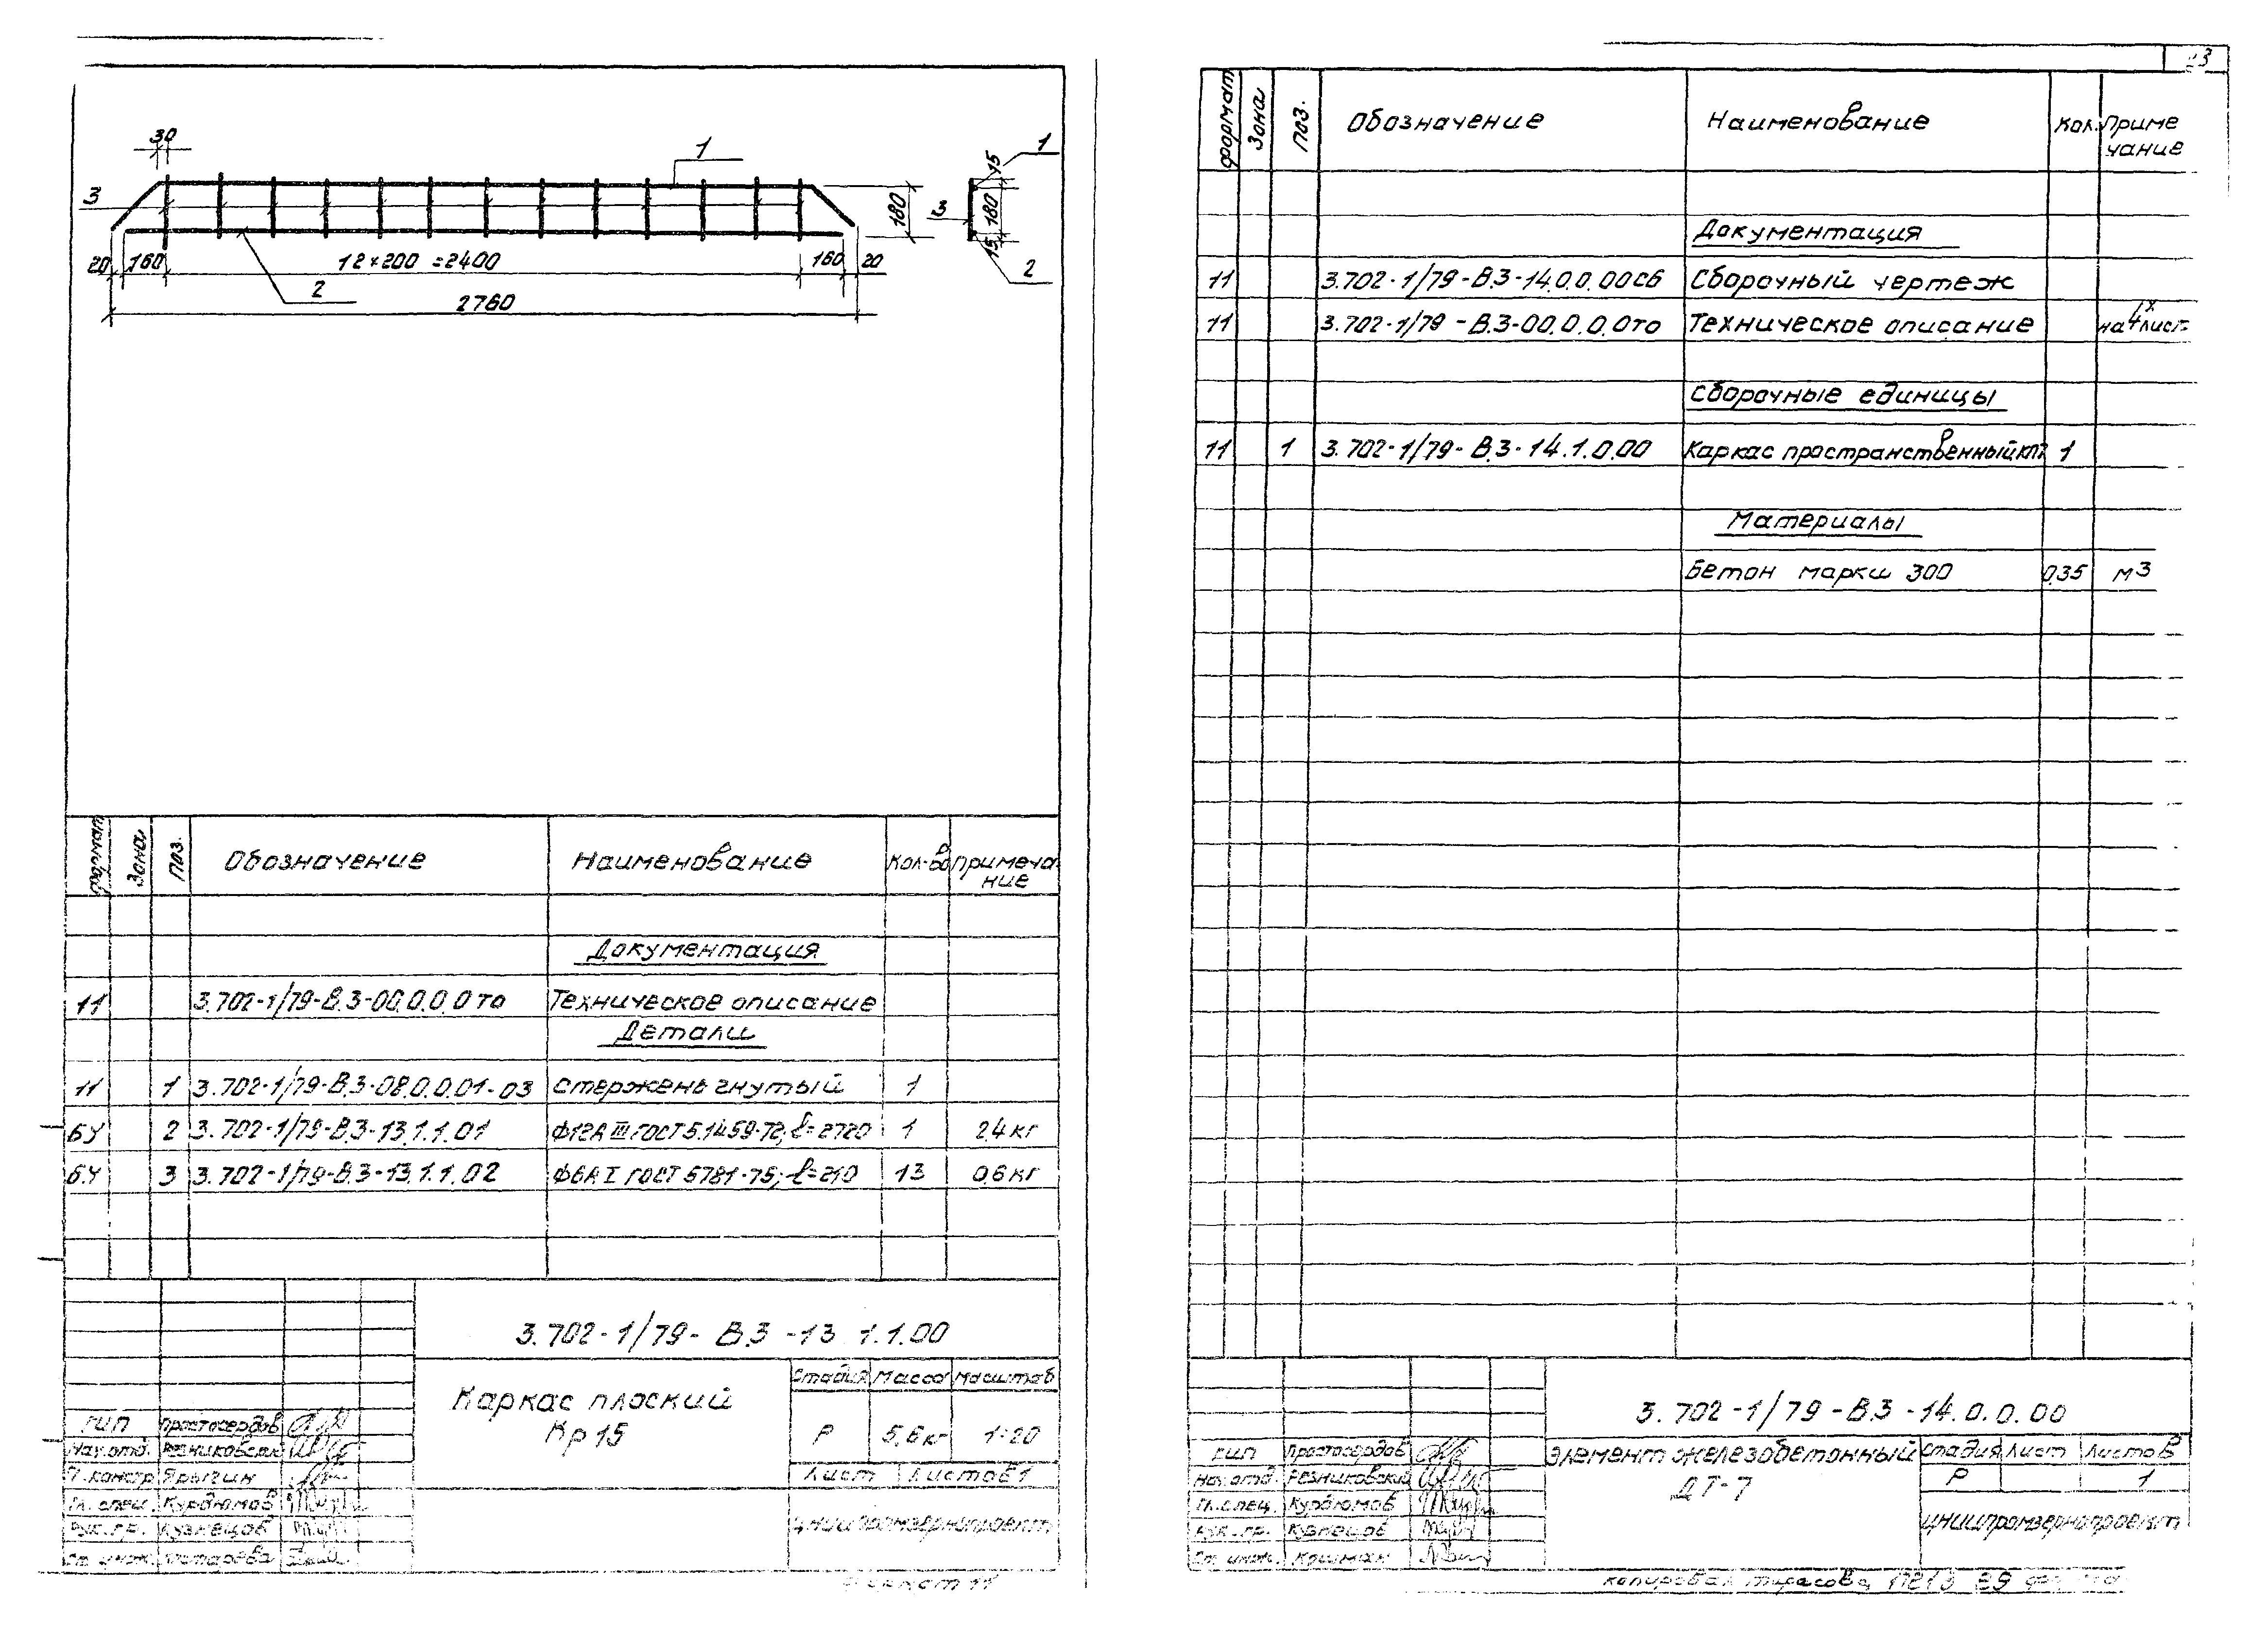 30
1
3
180
20
160
12×200 =2400
160
20
2
2760
1
15
3
180
15
2
формат
Зона
Поз.
Обозначение
Наименование
Кол-во
Примеча
ние
Документация
11 3.702-1/79-В.3-00.0.0.0то Техническое описание
Детали
11 1 3.702-1/79-В.3-08.0.0.01-03 Стержень гнутый 1
БЧ 2 3.702-1/79-В.3-13.1.1.01 Ф12А III ГОСТ 5.1459-72; ℓ=2720 1 2.4 кг
Б.Ч 3 3.702-1/79-В.3-13.1.1.02 Ф6А I ГОСТ 5781-75; ℓ=210 13 0.6 кг
3.702-1/79- В.3 -13 1.1.00
Каркас плоский
Кр 15
Стадия Масса Масштаб
Р 5,6 кг 1:20
Лист Листов 1
ЦНИИпромзернопроект
ГИП Простосердов
Нач.отд. Резниковский
Гл.констр Ярыгин
Гл.спец. Курдюмов
Рук.гр. Кузнецов
Ст. инж.
Формат 11
23
формат
Зона
Поз.
Обозначение
Наименование
Кол.
Приме
чание
Документация
11 3.702-1/79-В.3-14.0.0.00СБ Сборочный чертеж
11 3.702-1/79-В.3-00.0.0.0то Техническое описание на 4х лист.
Сборочные единицы
11 1 3.702-1/79-В.3-14.1.0.00 Каркас пространственный 1
Материалы
Бетон марки 300 0.35 м3
3.702-1/79-В.3-14.0.0.00
Элемент железобетонный
ДТ-7
Стадия Лист Листов
Р 1
ЦНИИпромзернопроект
ГИП Простосердов
Нач.отд. Резниковский
Гл.спец. Курдюмов
Рук.гр. Кузнецов
Ст. инж. Кришман
копировал Тарасова